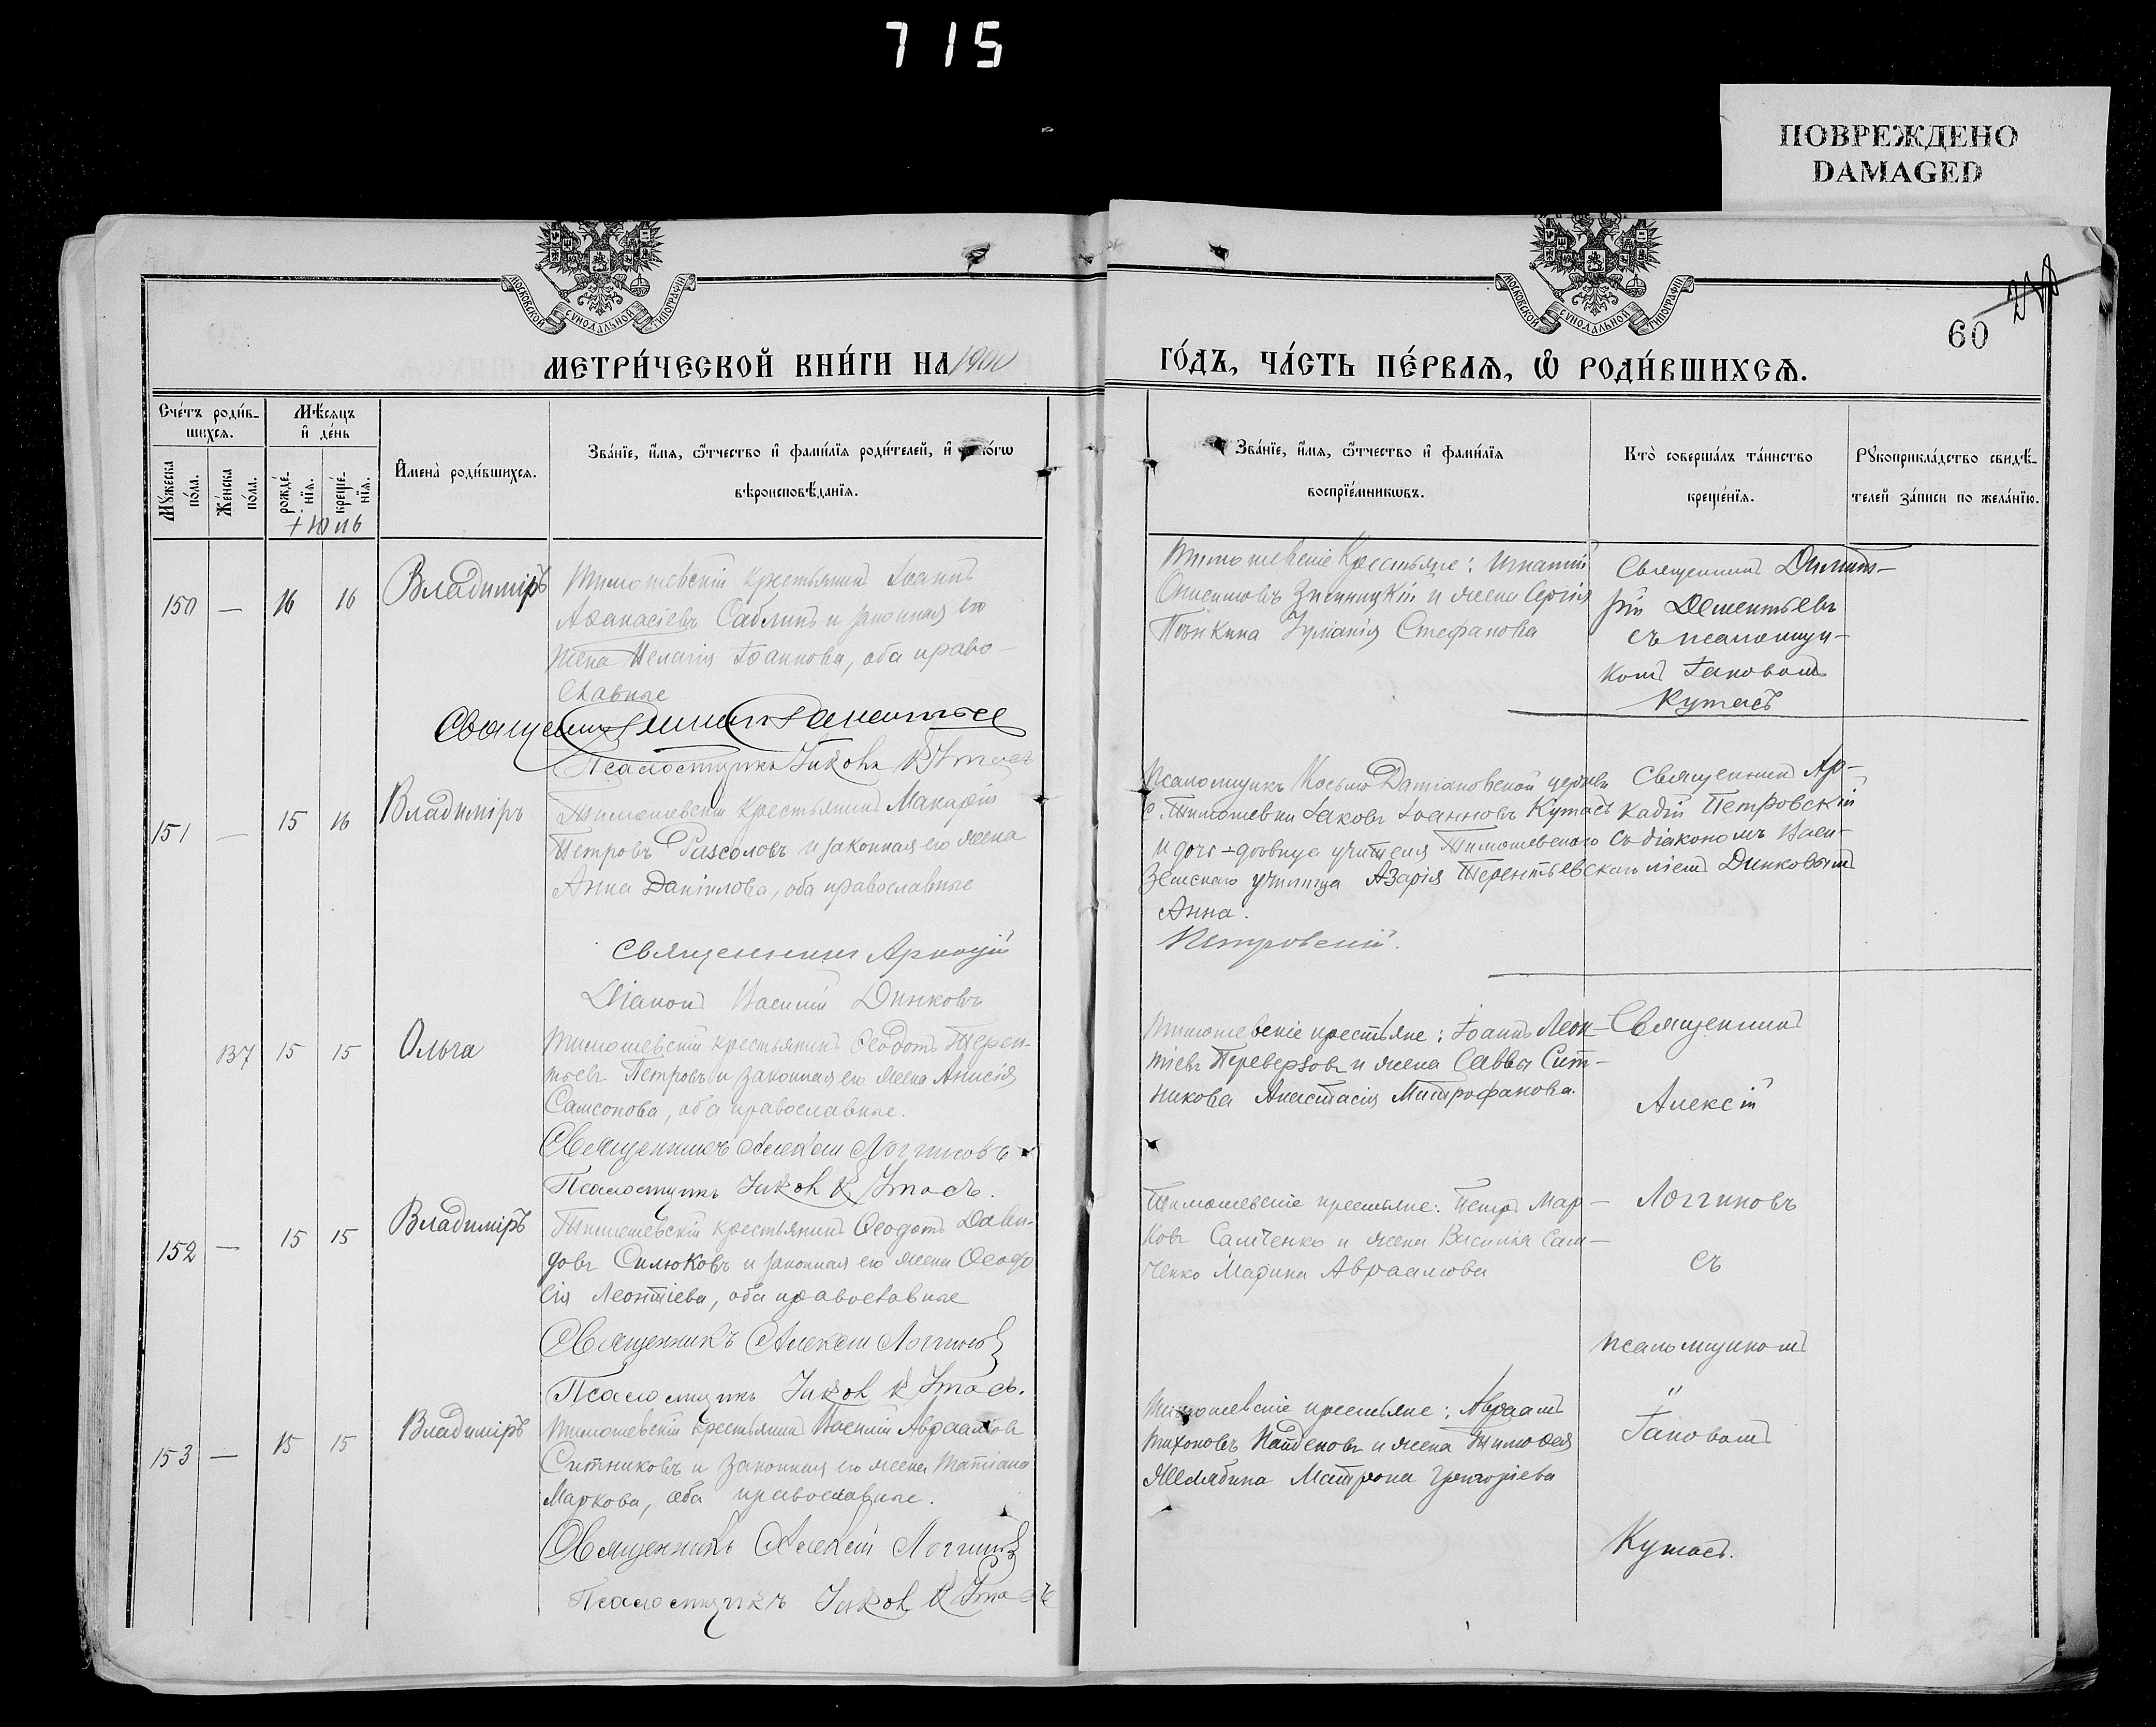 715
ПОВРЕЖДЕНО
DAMAGED
МОСКОВСКОЙ СУНОДАЛЬНОЙ ТИПОГРАФІИ
МОСКОВСКОЙ СУНОДАЛЬНОЙ ТИПОГРАФІИ
60
МЕТРИ́ЧЕСКОЙ КНИ́ГИ НА 1900
ГО́ДЪ, ЧА́СТЬ ПЕ́РВАѦ, Ѡ҆ РОДИ́ВШИХСѦ.
Сче́тъ роди́в-
шихся.
Мѣ́сяцъ
и҆ де́нь
Мꙋ́жеска
по́ла.
Же́нска
по́ла.
рожде́-
нїя.
креще́-
нїя.
Іюль
И҆мена̀ роди́вшихся.
Зва́нїе, и҆́мя, ѻ҆́тчество и҆ фами́лїя роди́телей, и҆ ко́гѡ
вѣроисповѣ́данїя.
Зва́нїе, и҆́мя, ѻ҆́тчество и҆ фами́лїя
воспрїе́мникѡвъ.
Кто̀ соверша́лъ та́инство
креще́нїя.
Рꙋкоприкла́дство свидѣ́-
телей за́писи по жела́нїю.
150 — 16 16 Владиміръ
Тимошевскій крестьянинъ Іоаннъ
Аѳанасіевъ Саблинъ и законная его
жена Пелагія Іоаннова, оба право-
славные
Священ
Псаломщикъ Іаковъ Кутасъ
Тимошевскіе крестьяне: Игнатій
Онисимовъ Зимницкій и жена Сергія
Стефанова
Священникъ Димит-
рій Дементьевъ
съ псаломщи-
комъ Іаковомъ
Кутасъ
151 — 15 16 Владиміръ
Тимошевскій крестьянинъ Макарій
Петровъ Разсоловъ и законная его жена
Анна Даніилова, оба православные
Священникъ Аркадій
Діаконъ Василій Динковъ
Псаломщикъ Косьмо Даміановской церкви
с. Тимошевки Іаковъ Іоанновъ Кутасъ
и дочь-дѣвица учителя Тимошевскаго
Земскаго училища Азарія Терентьевскаго
Анна.
Петровскій.
Священникъ Ар-
кадій Петровскій
съ діакономъ Васи-
ліемъ Динковымъ
137 15 15 Ольга
Тимошевскій крестьянинъ Ѳеодотъ Терен-
тьевъ Петровъ и законная его жена Анисія
Самсонова, оба православные.
Священникъ Алексій Логгиновъ
Псаломщикъ Іаковъ Кутасъ.
Тимошевскіе крестьяне: Іоаннъ Леон-
тіевъ Переверзовъ и жена Саввы Сит-
никова Анастасія Митрофанова.
Священникъ
Алексій
Логгиновъ
съ
псаломщикомъ
"
Іаковомъ
Кутасъ.
152 — 15 15 Владиміръ
Тимошевскій крестьянинъ Ѳеодотъ Дави-
довъ Силюковъ и законная его жена Ѳеодо
сія Леонтіева, оба православные
Священникъ Алексій Логгиновъ
Псаломщикъ Іаковъ Кутасъ.
Тимошевскіе крестьяне: Петръ Мар-
ковъ Самченко и жена Василія Сам-
ченко Марина Авраамова
153 — 15 15 Владиміръ
Тимошевскій крестьянинъ Василій Авраамовъ
Ситниковъ и законная его жена Татіана
Маркова, оба православные.
Священникъ Алексій Логгиновъ
Псаломщикъ Іаковъ Кутасъ
Тимошевскіе крестьяне: Авраамъ
Тихоновъ Найденовъ и жена Тимоѳея
Матрона Григоріева